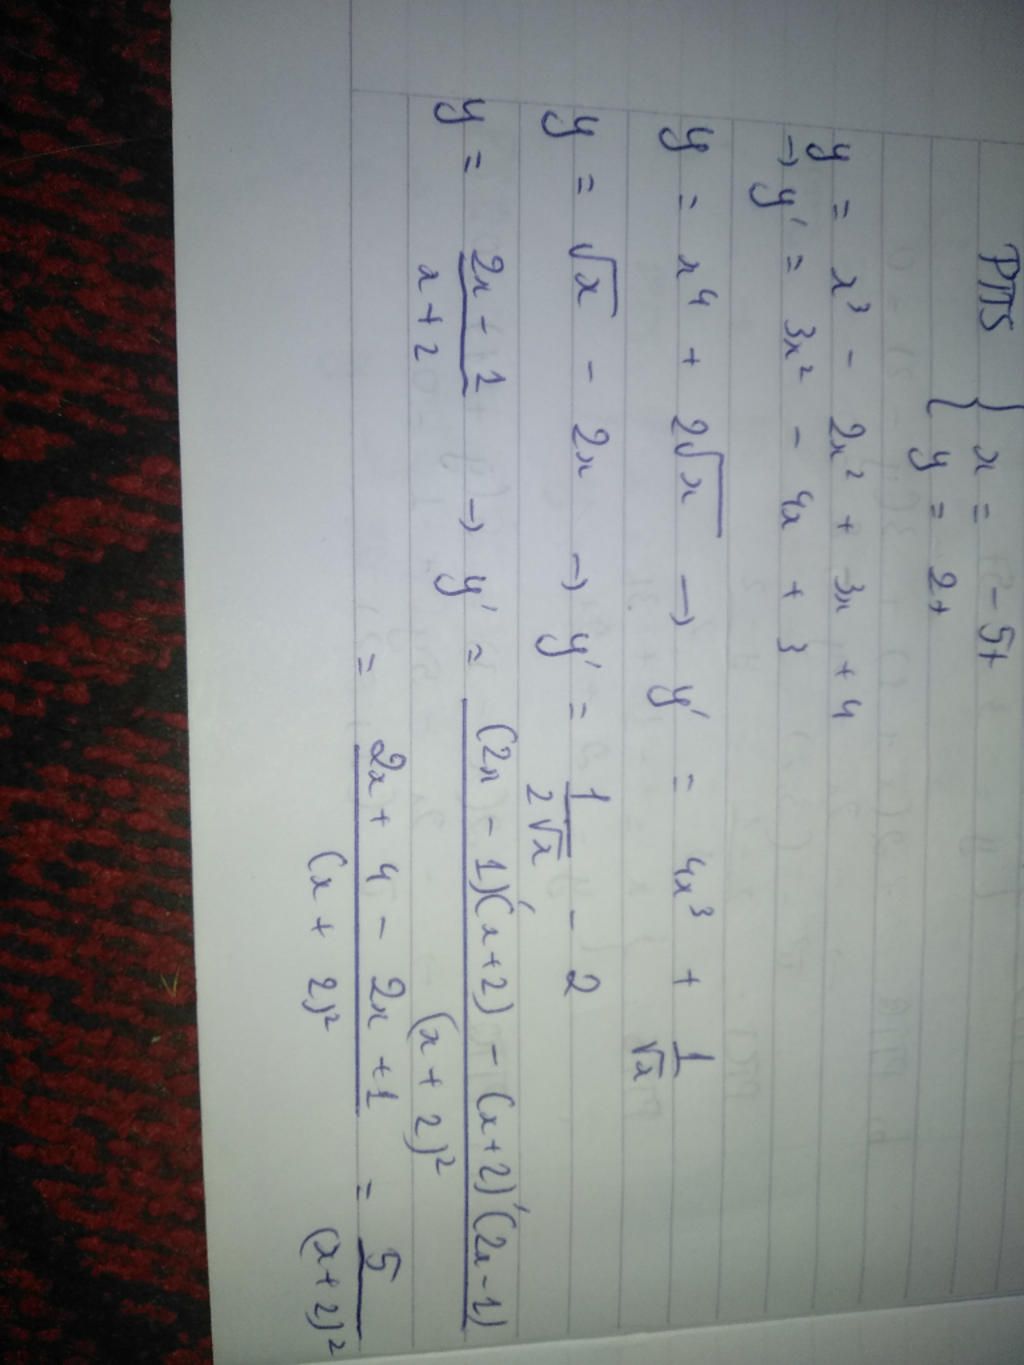 PTTS { x = -5t
{ y = 2t
y = x³ - 2x² + 3x + 4
→ y' = 3x² - 4x + 3
y = x⁴ + 2√x → y' = 4x³ + 1/√x
y = √x - 2x → y' = 1/(2√x) - 2
y = (2x - 1)/(x + 2) → y' = ((2x - 1)'(x+2) - (x+2)'(2x-1))/(x + 2)²
= (2x + 4 - 2x + 1)/(x + 2)² = 5/(x+2)²